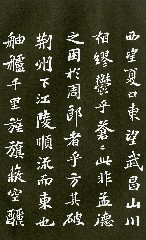 西望夏口東望武昌山川
相繆鬱乎蒼蒼此非孟德
之困於周郎者乎方其破
荆州下江陵順流而東也
舳艫千里旌旗蔽空釃